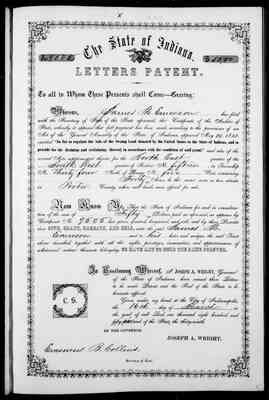 The State of Indiana.
LETTERS PATENT.
To all to Whom these Presents shall Come—Greeting:
Whereas, James B. Emerson has filed
with the Secretary of State of the State aforesaid, the Certificate of the Auditor of
State, whereby it appears that full payment has been made according to the provisions of an
Act of the General Assembly of the State of Indiana, approved May 29, 1852,
entitled "An Act to regulate the Sale of the Swamp Land donated by the United States to the State of Indiana, and to
provide for the draining and reclaiming thereof in accordance with the condition of said grant," and also of the
several Acts supplementary thereto, for the North East quarter of the
South West quarter of Section No. fifteen in Township
No. Thirty four North of Range No. five West containing
Forty acres
in Porter County, when sold lands were offered for sale.
Now Know Ye, That the State of Indiana for and in consideration
of the sum of Fifty Dollars
GIVE, GRANT, BARGAIN, AND SELL, unto the said James B.
Emerson and to his heirs and assigns the said Tract
above described, together with all the rights, privileges, immunities, and appurtenances of
whatsoever nature thereunto belonging, TO HAVE AND TO HOLD THE SAME FOREVER.
In Testimony Whereof, I, JOSEPH A. WRIGHT, Governor
of the State of Indiana, have caused these Letters
to be made Patent and the Seal of the State to be
hereunto affixed.
Given under my hand at the City of Indianapolis,
the 16th day of
the year of our Lord one thousand eight hundred and
C. S.
BY THE GOVERNOR
JOSEPH A. WRIGHT.
B. Collins
Secretary of State.